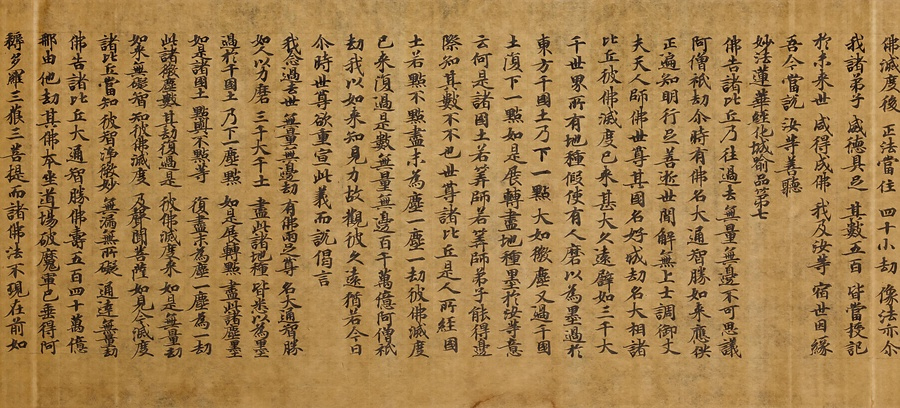 佛滅度後 正法當住 四十小劫 像法亦尒
我諸弟子 威德具足 其數五百 皆當授記
於未來世 咸得成佛 我及汝等 宿世因緣
吾今當説 汝等善聽
妙法蓮華經化城喻品第七
佛告諸比丘乃往過去無量無邊不可思議
阿僧祇劫尒時有佛名大通智勝如来應供
正遍知明行足善逝世間解無上士調御丈
夫天人師佛世尊其國名好城劫名大相諸
比丘彼佛滅度已来甚大久遠辟如三千大
千世界所有地種假使有人磨以為墨過於
東方千國土乃下一點大如微塵又過千國
土復下一點如是展轉盡地種墨於汝等意
云何是諸國土若筭師若筭師弟子能得邊
際知其數不不也世尊諸比丘是人所經國
土若點不點盡末為塵一塵一劫彼佛滅度
已来復過是數無量無邊百千萬億阿僧祇
劫我以如来知見力故觀彼久遠猶若今日
尒時世尊欲重宣此義而説偈言
我念過去世 無量無邊劫 有佛兩足尊 名大通智勝
如人以力磨 三千大千土 盡此諸地種 皆悉以為墨
過於千國土 乃下一塵點 如是展轉點 盡此諸塵墨
如是諸國土 點與不點等 復盡末為塵 一塵為一劫
此諸微塵數 其劫復過是 彼佛滅度来 如是無量劫
如来無礙智 知彼佛滅度 及聲聞菩薩 如見今滅度
諸比丘當知 彼智淨微妙 無漏無所礙 通達無量劫
佛告諸比丘大通智勝佛壽五百四十萬億
那由他劫其佛本坐道場破魔軍已垂得阿
耨多羅三藐三菩提而諸佛法不現在前如